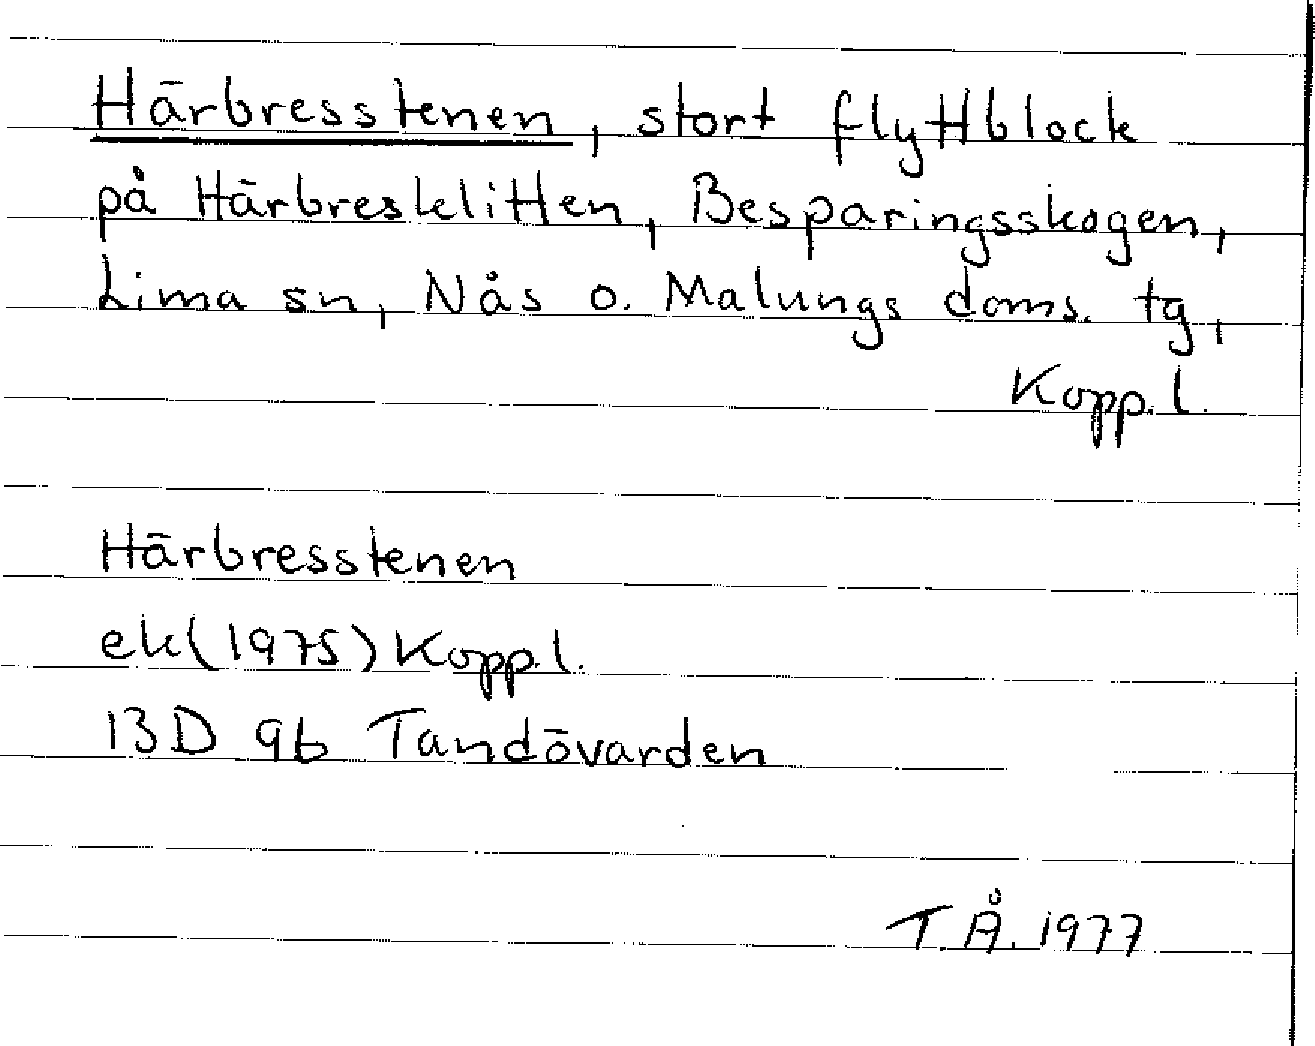 Härbresstenen, stort flyttblock
på Härbresklitten, Besparingsskogen,
Lima sn, Nås o. Malungs doms. tg,
Kopp. l.
Härbresstenen
ek (1975) Kopp. l.
13D 9b Tandövarden
T.Å. 1977